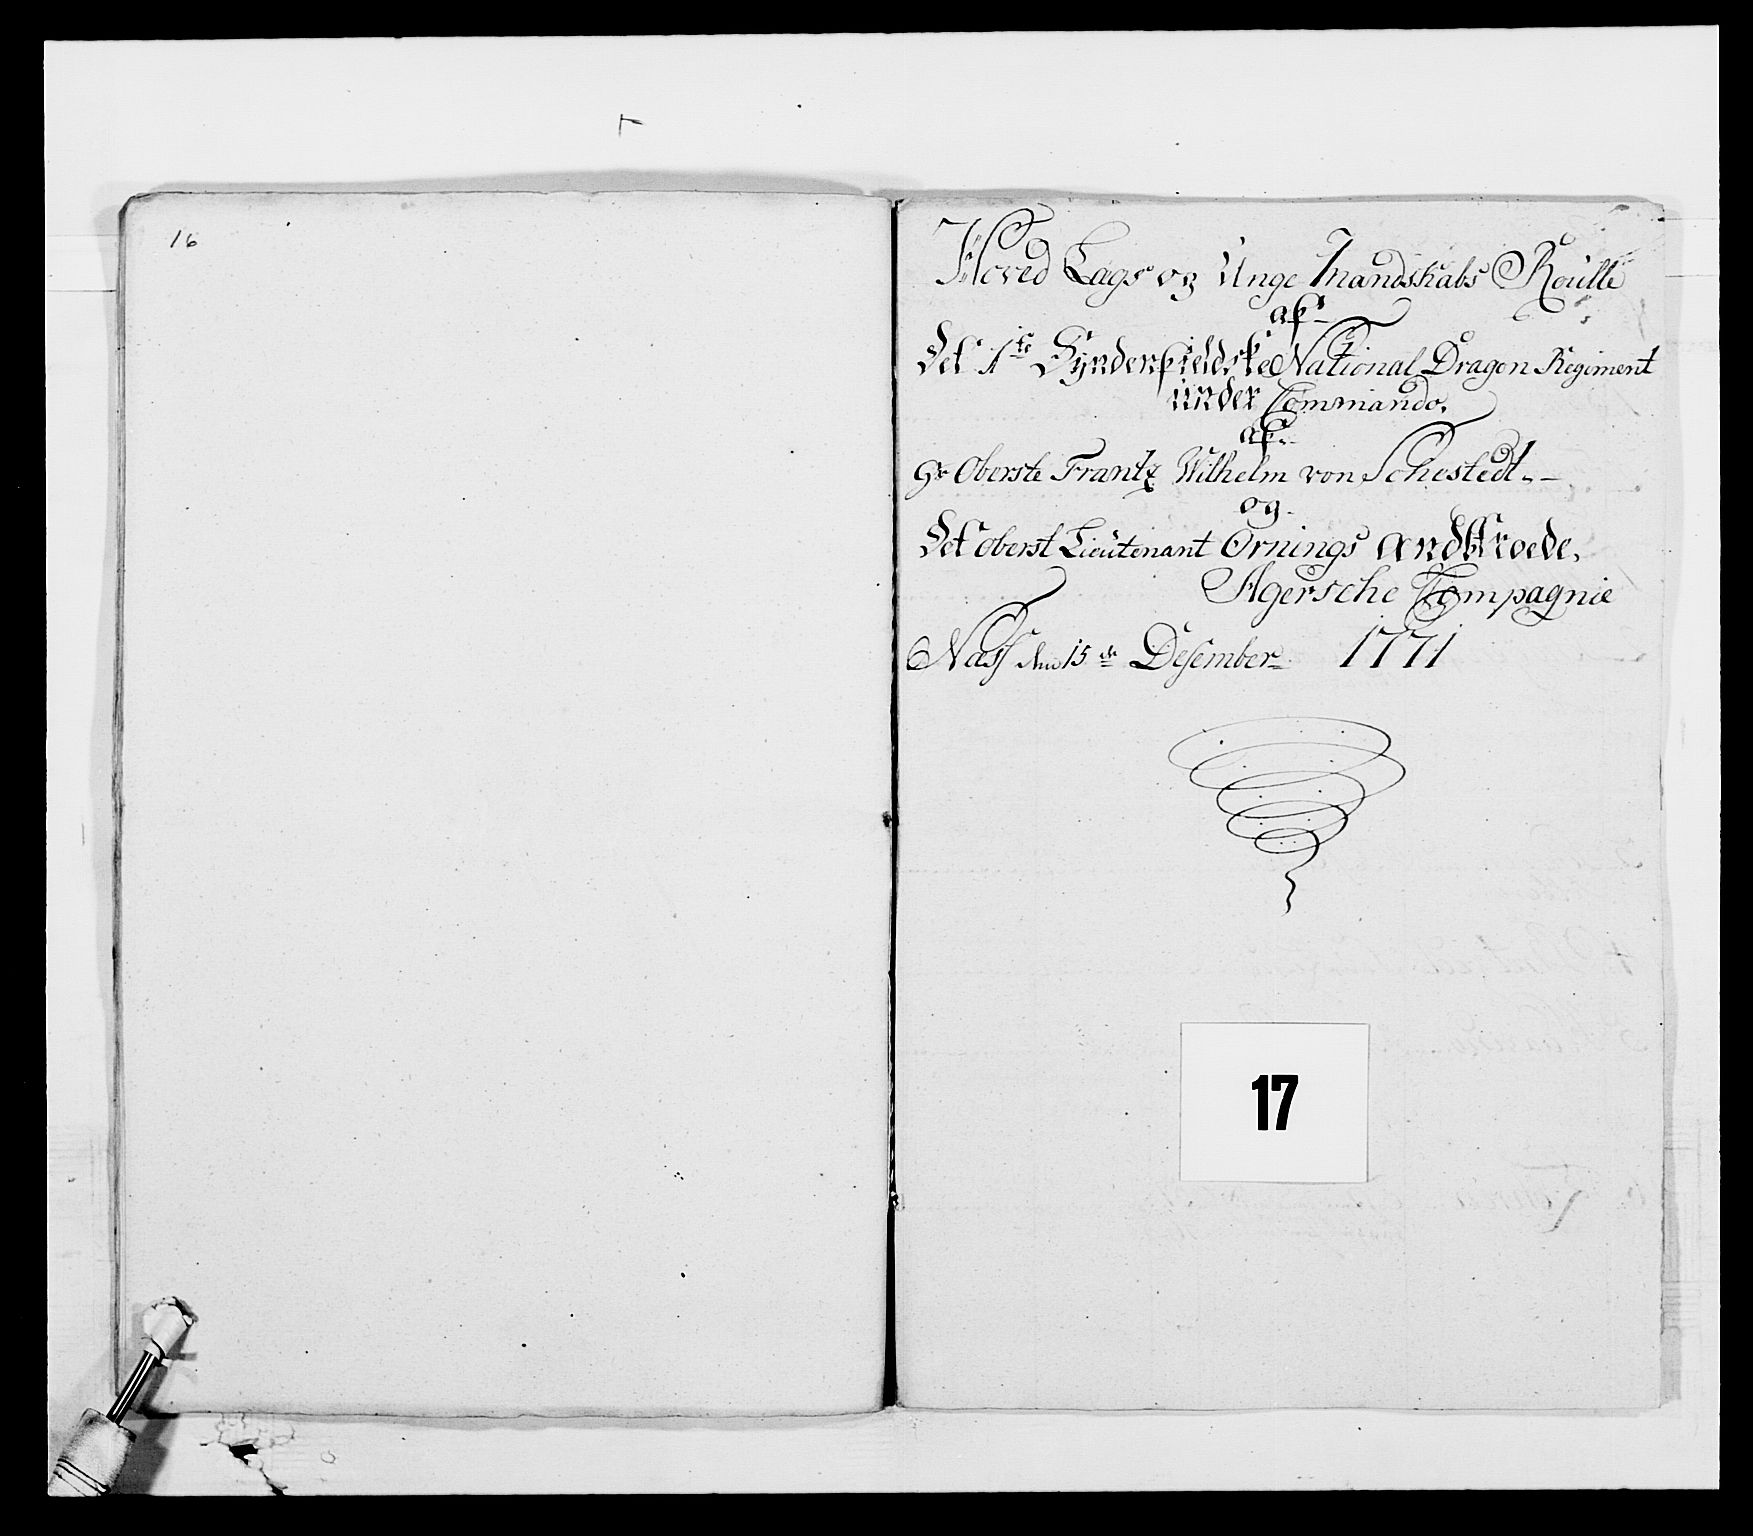 16
Hoved Lags og Unge Mandskabs Roulle
af
Det 1te Synderfieldske National Dragon Regiment
under Commando.
af.
Hr Oberste Frantz Wilhelm von Schestedt.
og.
Det oberst Lieutenant Örnings anförtroede.
Agersche Compagnie
Næss den 15de Desember 1771
17